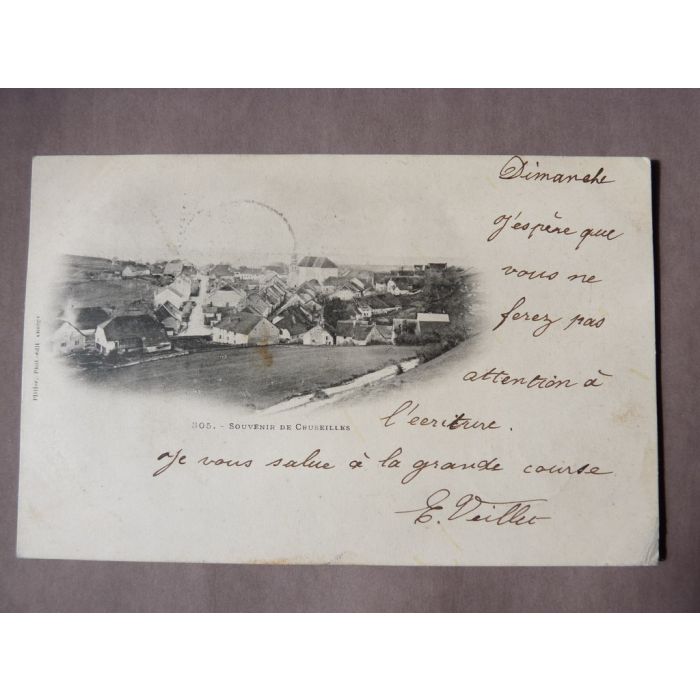 Dimanche
J'espère que
vous ne
ferez pas
attention à
l'écriture.
Je vous salue à la grande course
E. Veillet
305. - SOUVENIR DE CRUSEILLES
Pittier, Phot. édit. Annecy